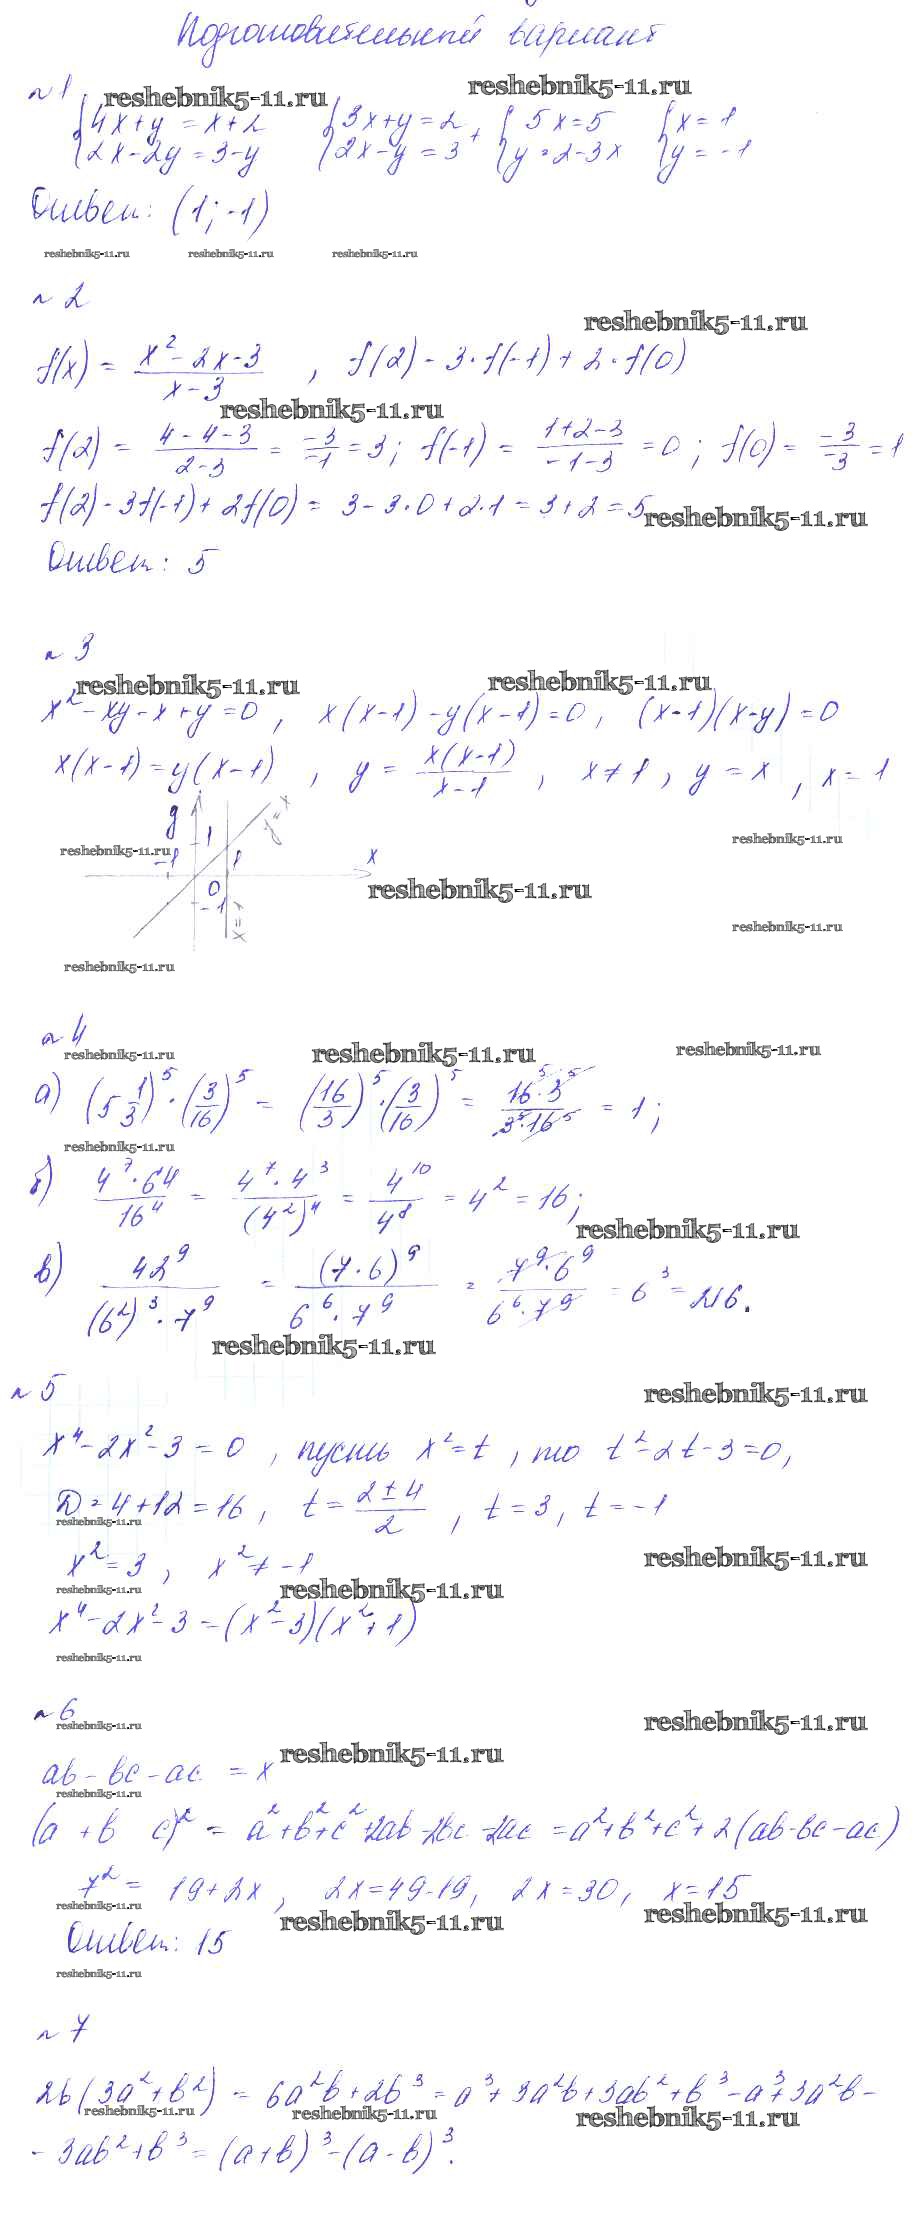 Подготовительный вариант
№1
reshebnik5-11.ru reshebnik5-11.ru
{4x+y=x+2 {3x+y=2 + {5x=5 {x=1
{2x-2y=3-y {2x-y=3 {y=2-3x {y=-1
Ответ: (1;-1)
reshebnik5-11.ru reshebnik5-11.ru reshebnik5-11.ru
№2
reshebnik5-11.ru
f(x) = (x²-2x-3)/(x-3), f(2)-3·f(-1)+2·f(0)
reshebnik5-11.ru
f(2) = (4-4-3)/(2-3) = -3/-1 = 3; f(-1) = (1+2-3)/(-1-3) = 0; f(0) = -3/-3 = 1
f(2)-3f(-1)+2f(0) = 3-3·0+2·1=3+2=5
reshebnik5-11.ru
Ответ: 5
№3
reshebnik5-11.ru reshebnik5-11.ru
x²-xy-x+y=0, x(x-1)-y(x-1)=0, (x-1)(x-y)=0
x(x-1)=y(x-1), y = x(x-1)/(x-1), x≠1, y=x, x=1
y 1 y=x
reshebnik5-11.ru reshebnik5-11.ru
-1 1 x
0
reshebnik5-11.ru
-1 x=1
reshebnik5-11.ru
reshebnik5-11.ru
№4
reshebnik5-11.ru reshebnik5-11.ru reshebnik5-11.ru
а) (5 1/3)⁵·(3/16)⁵ = (16/3)⁵·(3/16)⁵ = 16⁵·3⁵/3⁵·16⁵ = 1;
reshebnik5-11.ru
б) 4⁷·64/16⁴ = 4⁷·4³/(4²)⁴ = 4¹⁰/4⁸ = 4² = 16;
reshebnik5-11.ru
в) 42⁹/(6²)³·7⁹ = (7·6)⁹/6⁶·7⁹ = 7⁹·6⁹/6⁶·7⁹ = 6³ = 216.
reshebnik5-11.ru
№5
reshebnik5-11.ru
x⁴-2x²-3=0, пусть x²=t, то t²-2t-3=0,
D=4+12=16, t=(2±4)/2, t=3, t=-1
reshebnik5-11.ru
x²=3, x²≠-1
reshebnik5-11.ru
reshebnik5-11.ru reshebnik5-11.ru
x⁴-2x²-3=(x²-3)(x²+1)
reshebnik5-11.ru
№6
reshebnik5-11.ru reshebnik5-11.ru
ab-bc-ac=x
reshebnik5-11.ru
reshebnik5-11.ru
(a+b c)² = a²+b²+c²+2ab-2bc-2ac=a²+b²+c²+2(ab-bc-ac)
7² = 19+2x, 2x=49-19, 2x=30, x=15
reshebnik5-11.ru reshebnik5-11.ru reshebnik5-11.ru
Ответ: 15
reshebnik5-11.ru
№7
2b(3a²+b²) = 6a²b+2b³=a³+3a²b+3ab²+b³-a³+3a²b-
reshebnik5-11.ru reshebnik5-11.ru reshebnik5-11.ru
-3ab²+b³=(a+b)³-(a-b)³.